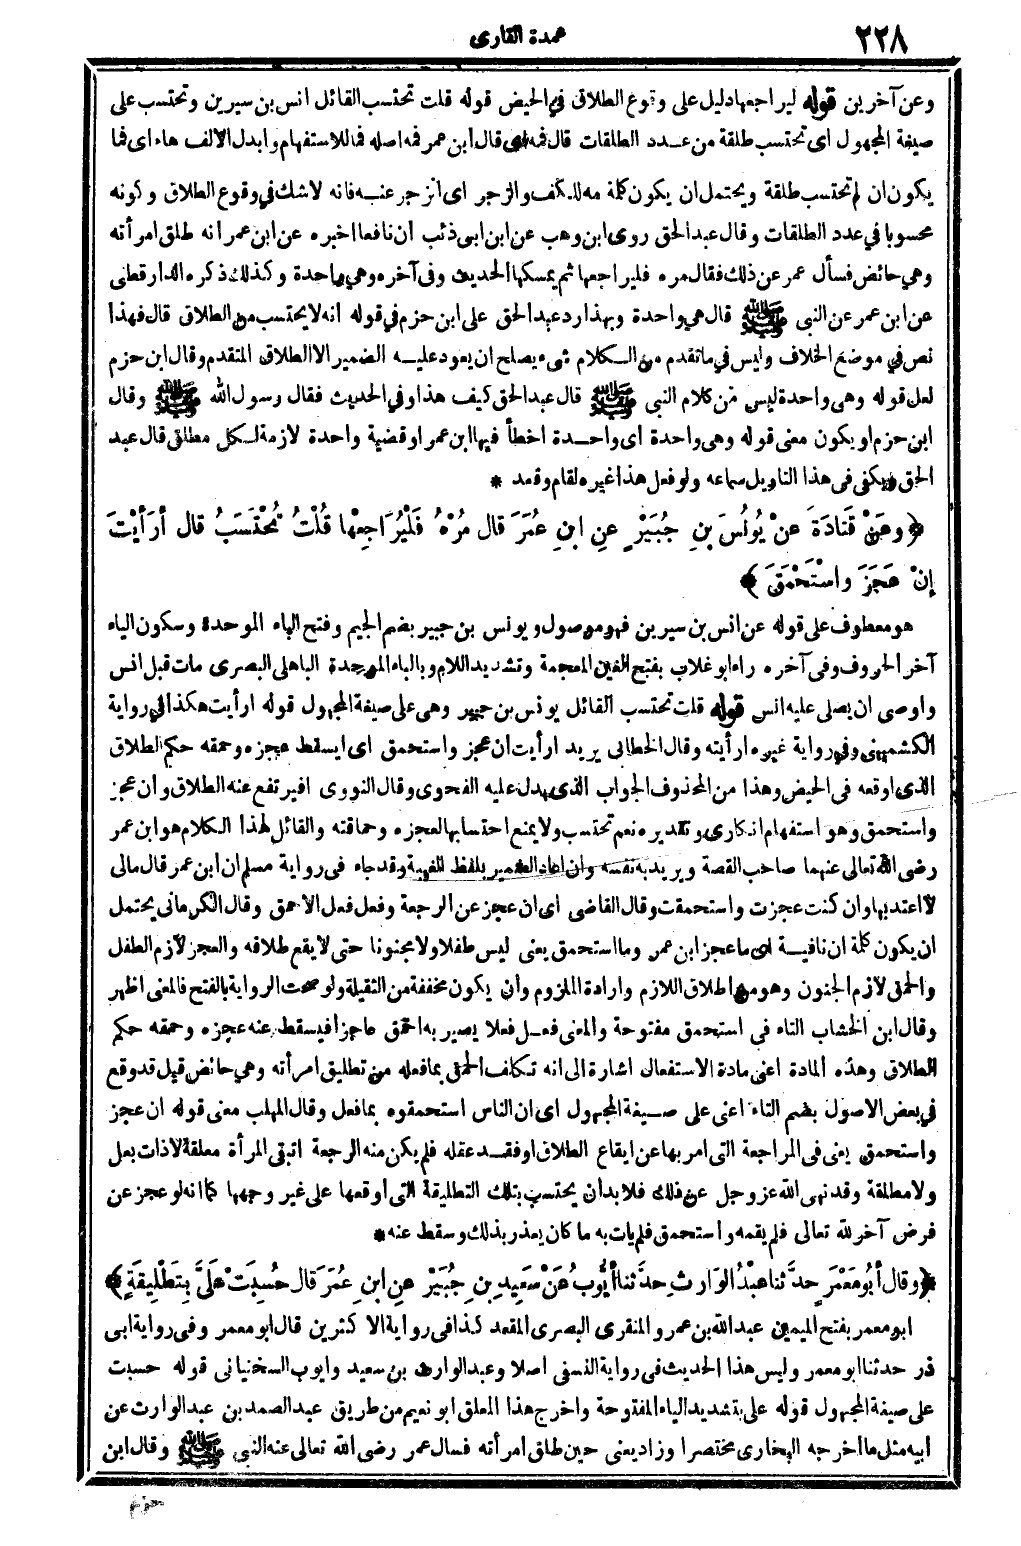 ٢٢٨
عمدة القارى
وعن آخرين قوله ليراجعها دليل على وقوع الطلاق في الحيض قوله قلت تحتسب القائل انس بن سيرين وتحتسب على
صيغة المجهول اى تحتسب طلقة من عدد الطلقات قال فمه اى قال ابن عمر فمه اصله فما للاستفهام وابدل الالف هاء اى فما
يكون ان لم تحتسب طلقة ويحتمل ان يكون كلمة مه للكف والزجر اى انزجر عنه فانه لا شك في وقوع الطلاق وكونه
محسوبا في عدد الطلقات وقال عبد الحق روى ابن وهب عن ابن ابى ذئب ان نافعا اخبره عن ابن عمر انه طلق امرأته
وهي حائض فسأل عمر عن ذلك فقال مره فليراجعها ثم يمسكها الحديث وفى آخره وهي واحدة وكذلك ذكره الدارقطنى
عن ابن عمر عن النبى ﷺ قال هي واحدة وبهذا رد عبد الحق على ابن حزم في قوله انه لا يحتسب من الطلاق قال فهذا
نص في موضع الخلاف وليس في ما تقدم من الكلام شىء يصلح ان يعود عليه الضمير الا الطلاق المتقدم وقال ابن حزم
لعل قوله وهى واحدة ليس من كلام النبى ﷺ قال عبد الحق كيف هذا وفي الحديث فقال رسول الله ﷺ وقال
ابن حزم او يكون معنى قوله وهى واحدة اى واحدة اخطأ فيها ابن عمر او قضية واحدة لازمة لكل مطلق قال عبد
الحق ويكفى فى هذا التاويل سماعه ولو فعل هذا غيره لقام وقعد *
﴿ وعَنْ قَتَادَةَ عَنْ يُونُسَ بنِ جُبَيْرٍ عنِ ابنِ عُمَرَ قال مُرْهُ فَلْيُرَاجِعْها قُلْتُ تُحْتَسَبُ قال أرَأيْتَ
إنْ عَجَزَ واسْتَحْمَقَ ﴾
هو معطوف على قوله عن انس بن سيرين فهو موصول ويونس بن جبير بضم الجيم وفتح الباء الموحدة وسكون الياء
آخر الحروف وفى آخره راء ابو غلاب بفتح الغين المعجمة وتشديد اللام وبالباء الموحدة الباهلى البصرى مات قبل انس
واوصى ان يصلى عليه انس قوله قلت تحتسب القائل يونس بن جبير وهى على صيغة المجهول قوله ارأيت هكذا في رواية
الكشميهنى وفي رواية غيره ارأيته وقال الخطابى يريد ارأيت ان عجز واستحمق اى ايسقط عجزه وحمقه حكم الطلاق
الذى اوقعه فى الحيض وهذا من المحذوف الجواب الذى يدل عليه الفحوى وقال النووى افيرتفع عنه الطلاق وان عجز
واستحمق وهو استفهام انكارى وتقديره نعم تحتسب ولا يمنع احتسابها لعجزه وحماقته والقائل لهذا الكلام هو ابن عمر
رضى الله تعالى عنهما صاحب القصة ويريد به نفسه وان اعاد الضمير بلفظ الغيبة وقد جاء فى رواية مسلم ان ابن عمر قال مالى
لا اعتد بها وان كنت عجزت واستحمقت وقال القاضى اى ان عجز عن الرجعة وفعل فعل الاحمق وقال الكرمانى يحتمل
ان يكون كلمة ان نافية اى ما عجز ابن عمر وما استحمق يعنى ليس طفلا ولا مجنونا حتى لا يقع طلاقه والعجز لازم الطفل
والحمق لازم الجنون وهو من اطلاق اللازم وارادة الملزوم وان يكون مخففة من الثقيلة ولو صحت الرواية بالفتح فالمعنى اظهر
وقال ابن الخشاب التاء فى استحمق مفتوحة والمعنى فعل فعلا يصير به احمق عاجزا فيسقط عنه عجزه وحمقه حكم
الطلاق وهذه المادة اعنى مادة الاستفعال اشارة الى انه تكلف الحمق بما فعله من تطليق امرأته وهي حائض قيل قد وقع
في بعض الاصول بضم التاء اعنى على صيغة المجهول اى ان الناس استحمقوه بما فعل وقال المهلب معنى قوله ان عجز
واستحمق يعنى فى المراجعة التى امر بها عن ايقاع الطلاق او فقد عقله فلم يكن منه الرجعة اتبقى المرأة معلقة لا ذات بعل
ولا مطلقة وقد نهى الله عز وجل عن ذلك فلا بد ان يحتسب بتلك التطليقة التى اوقعها على غير وجهها كما انه لو عجز عن
فرض آخر لله تعالى فلم يقمه واستحمق فلم يات به ما كان يعذر بذلك وسقط عنه *
﴿ وقال أبُو مَعْمَرٍ حدَّثنا عبْدُ الوَارِثِ حدَّثنا أيُّوبُ عنْ سَعِيدِ بنِ جُبَيْرٍ عنِ ابنِ عُمَرَ قال حُسِبَتْ علَيَّ بِتَطْلِيقَةٍ ﴾
ابو معمر بفتح الميمين عبد الله بن عمرو المنقرى البصرى المقعد كذا فى رواية الاكثرين قال ابو معمر وفى رواية ابى
ذر حدثنا ابو معمر وليس هذا الحديث فى رواية النسفى اصلا وعبد الوارث بن سعيد وايوب السختيانى قوله حسبت
على صيغة المجهول قوله على بتشديد الياء المفتوحة واخرج هذا المعلق ابو نعيم من طريق عبد الصمد بن عبد الوارث عن
ابيه مثل ما اخرجه البخارى مختصرا وزاد يعنى حين طلق امرأته فسال عمر رضى الله تعالى عنه النبى ﷺ وقال ابن
حزم